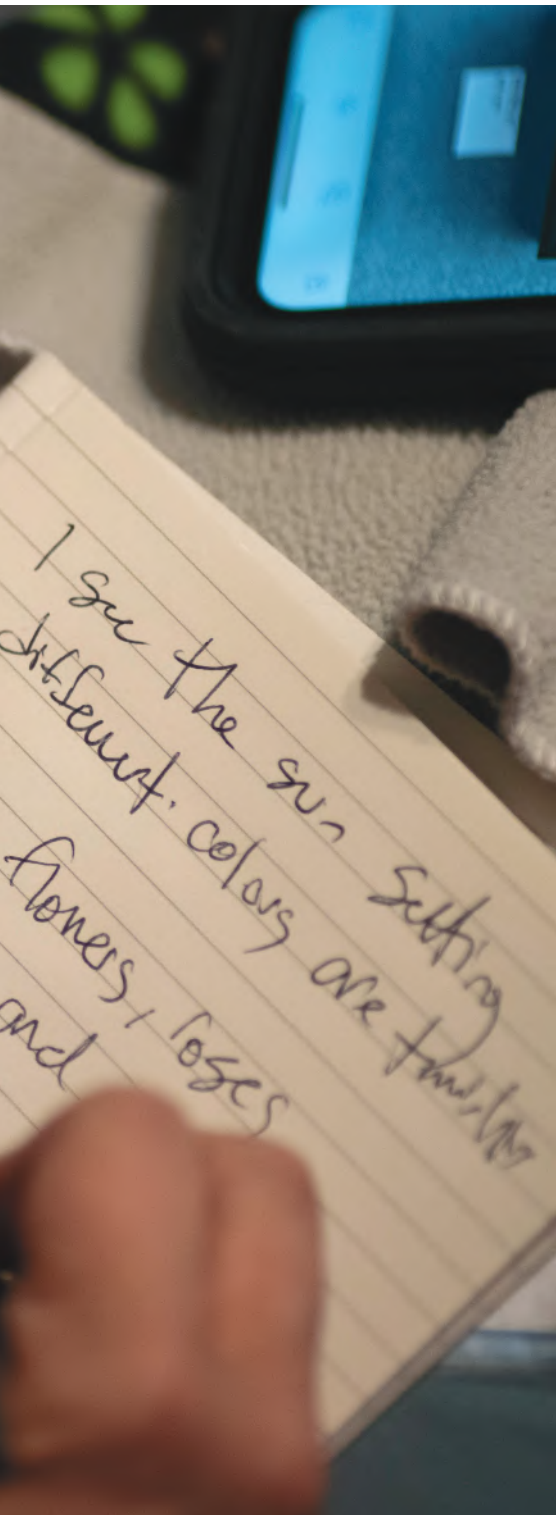 I see the sun setting
different. colors are
flowers, roses
and